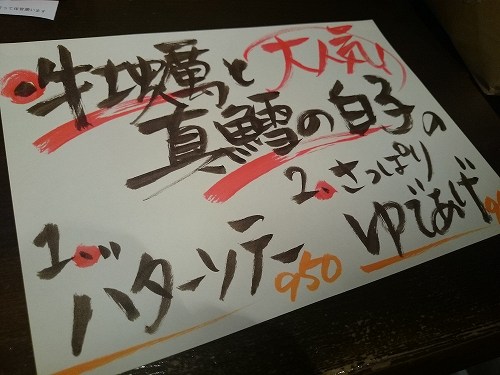 大人気!
牡蠣と
真鱈の白子の
1. バターソテー 950
2. さっぱり
ゆであげ